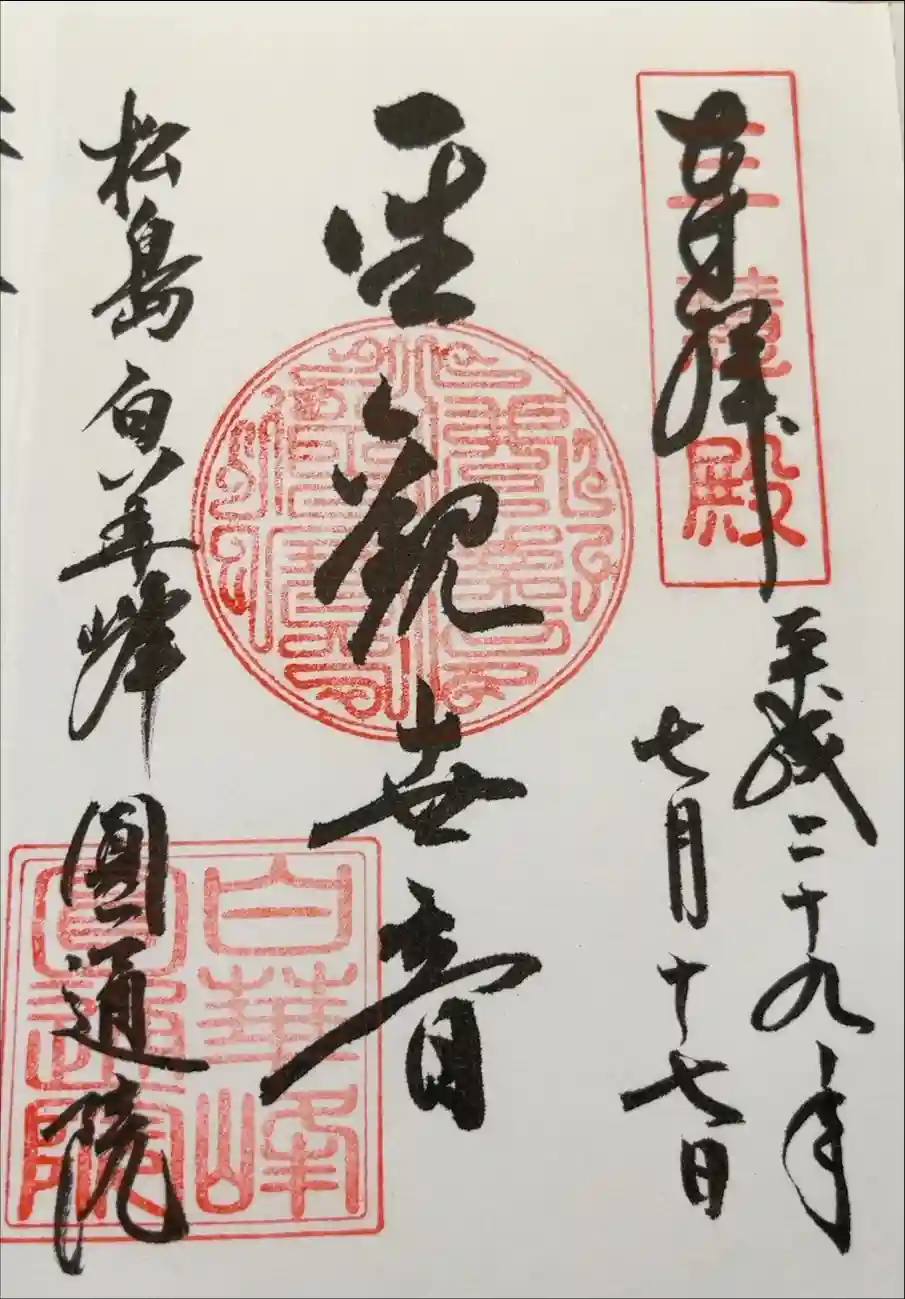 奉拝
三慧殿
平成二十九年
七月十七日
聖観世音
松島白華峰圓通院
白華峰
圓通院